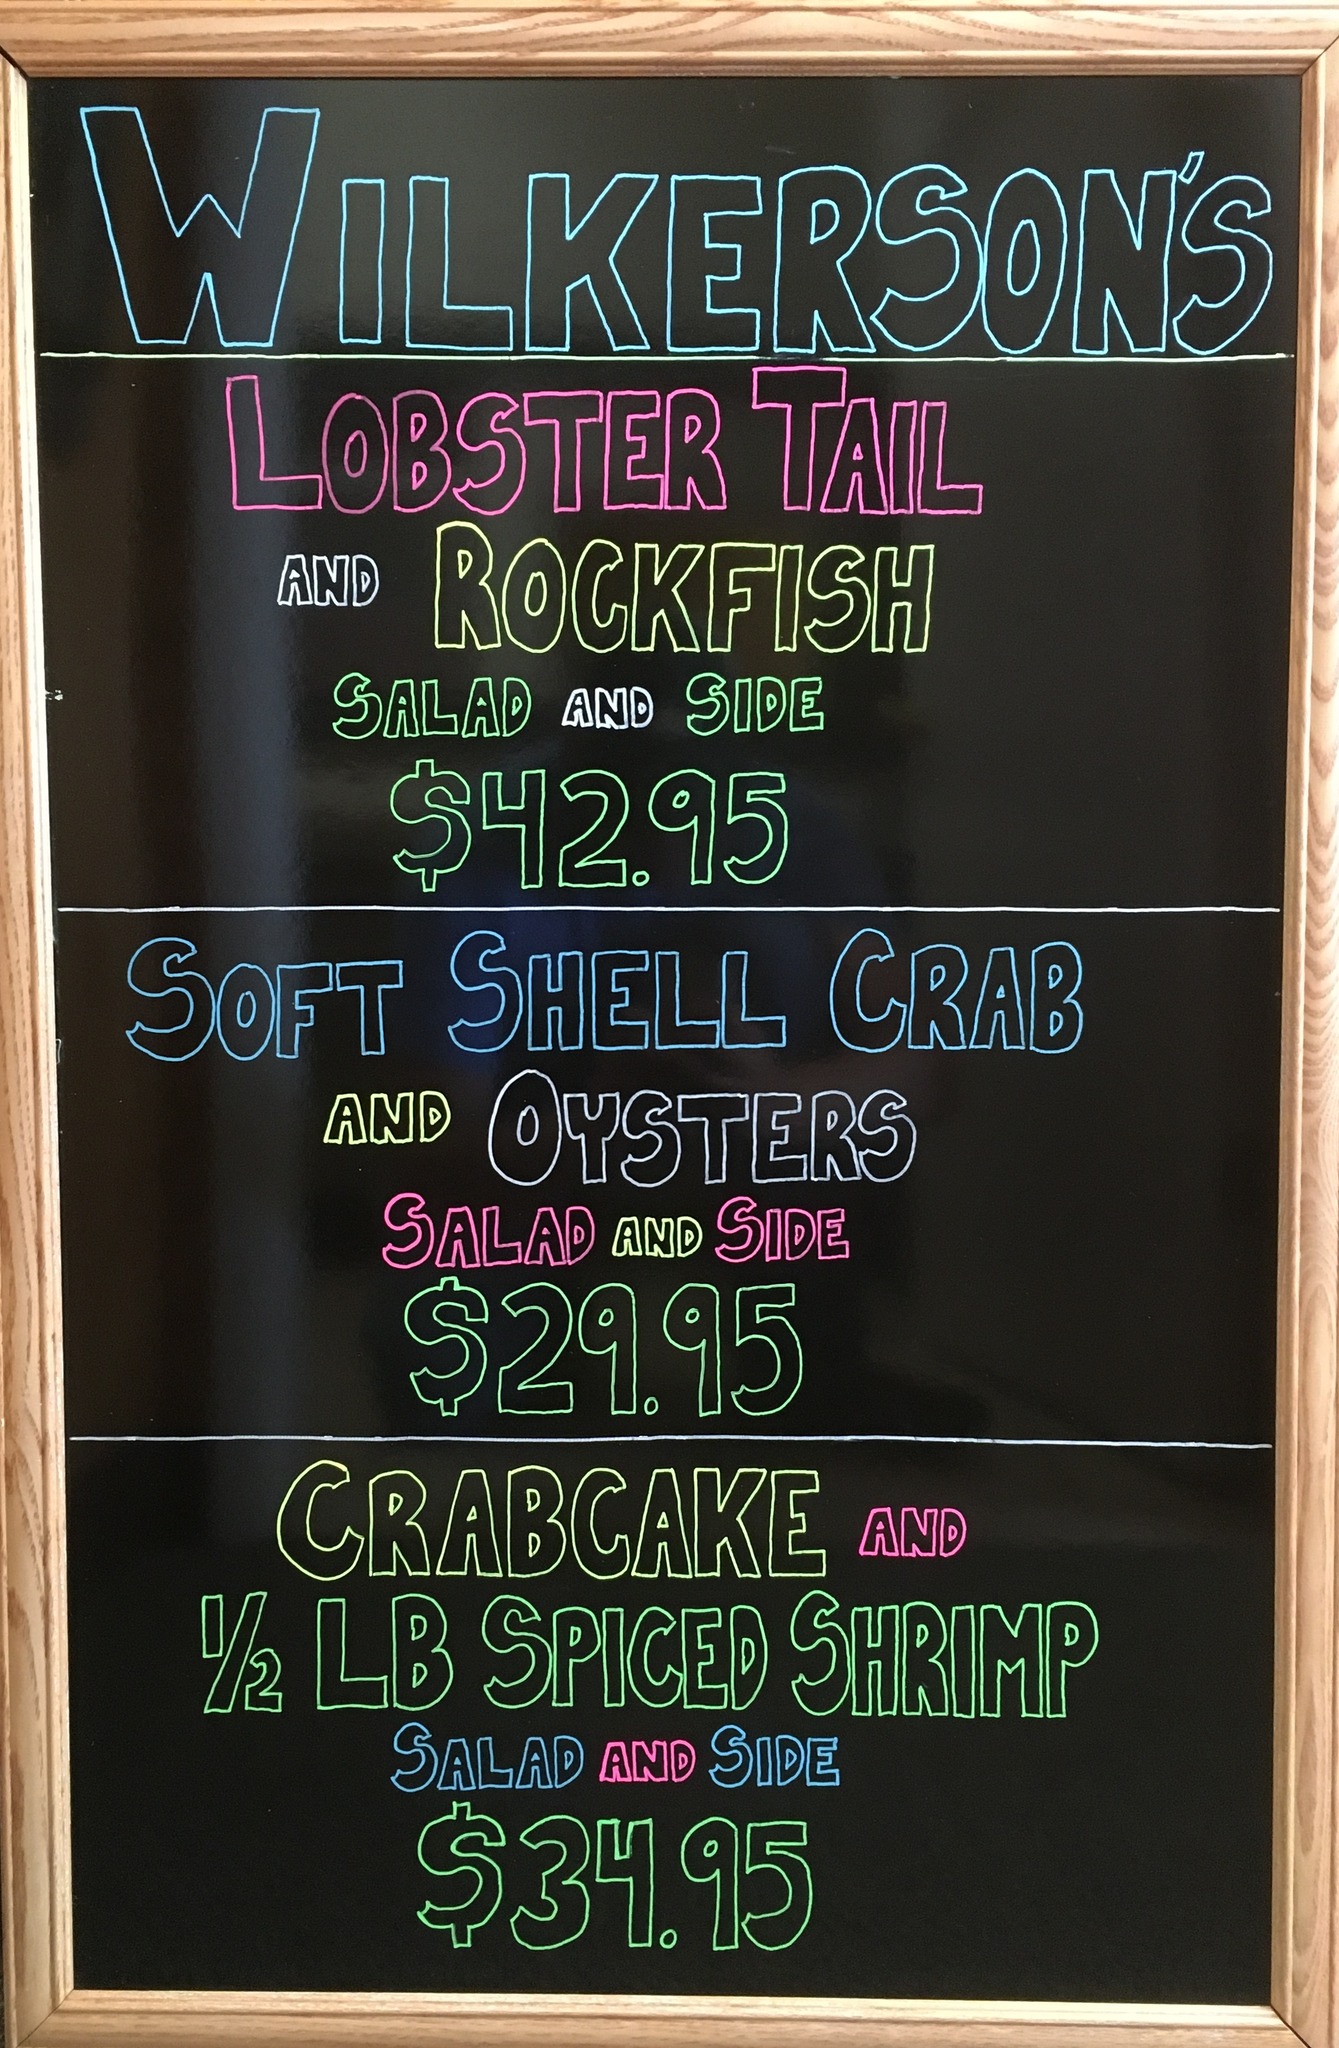 WILKERSON'S
LOBSTER TAIL
AND ROCKFISH
SALAD AND SIDE
$42.95
SOFT SHELL CRAB
AND OYSTERS
SALAD AND SIDE
$29.95
CRABCAKE AND
1/2 LB SPICED SHRIMP
SALAD AND SIDE
$34.95